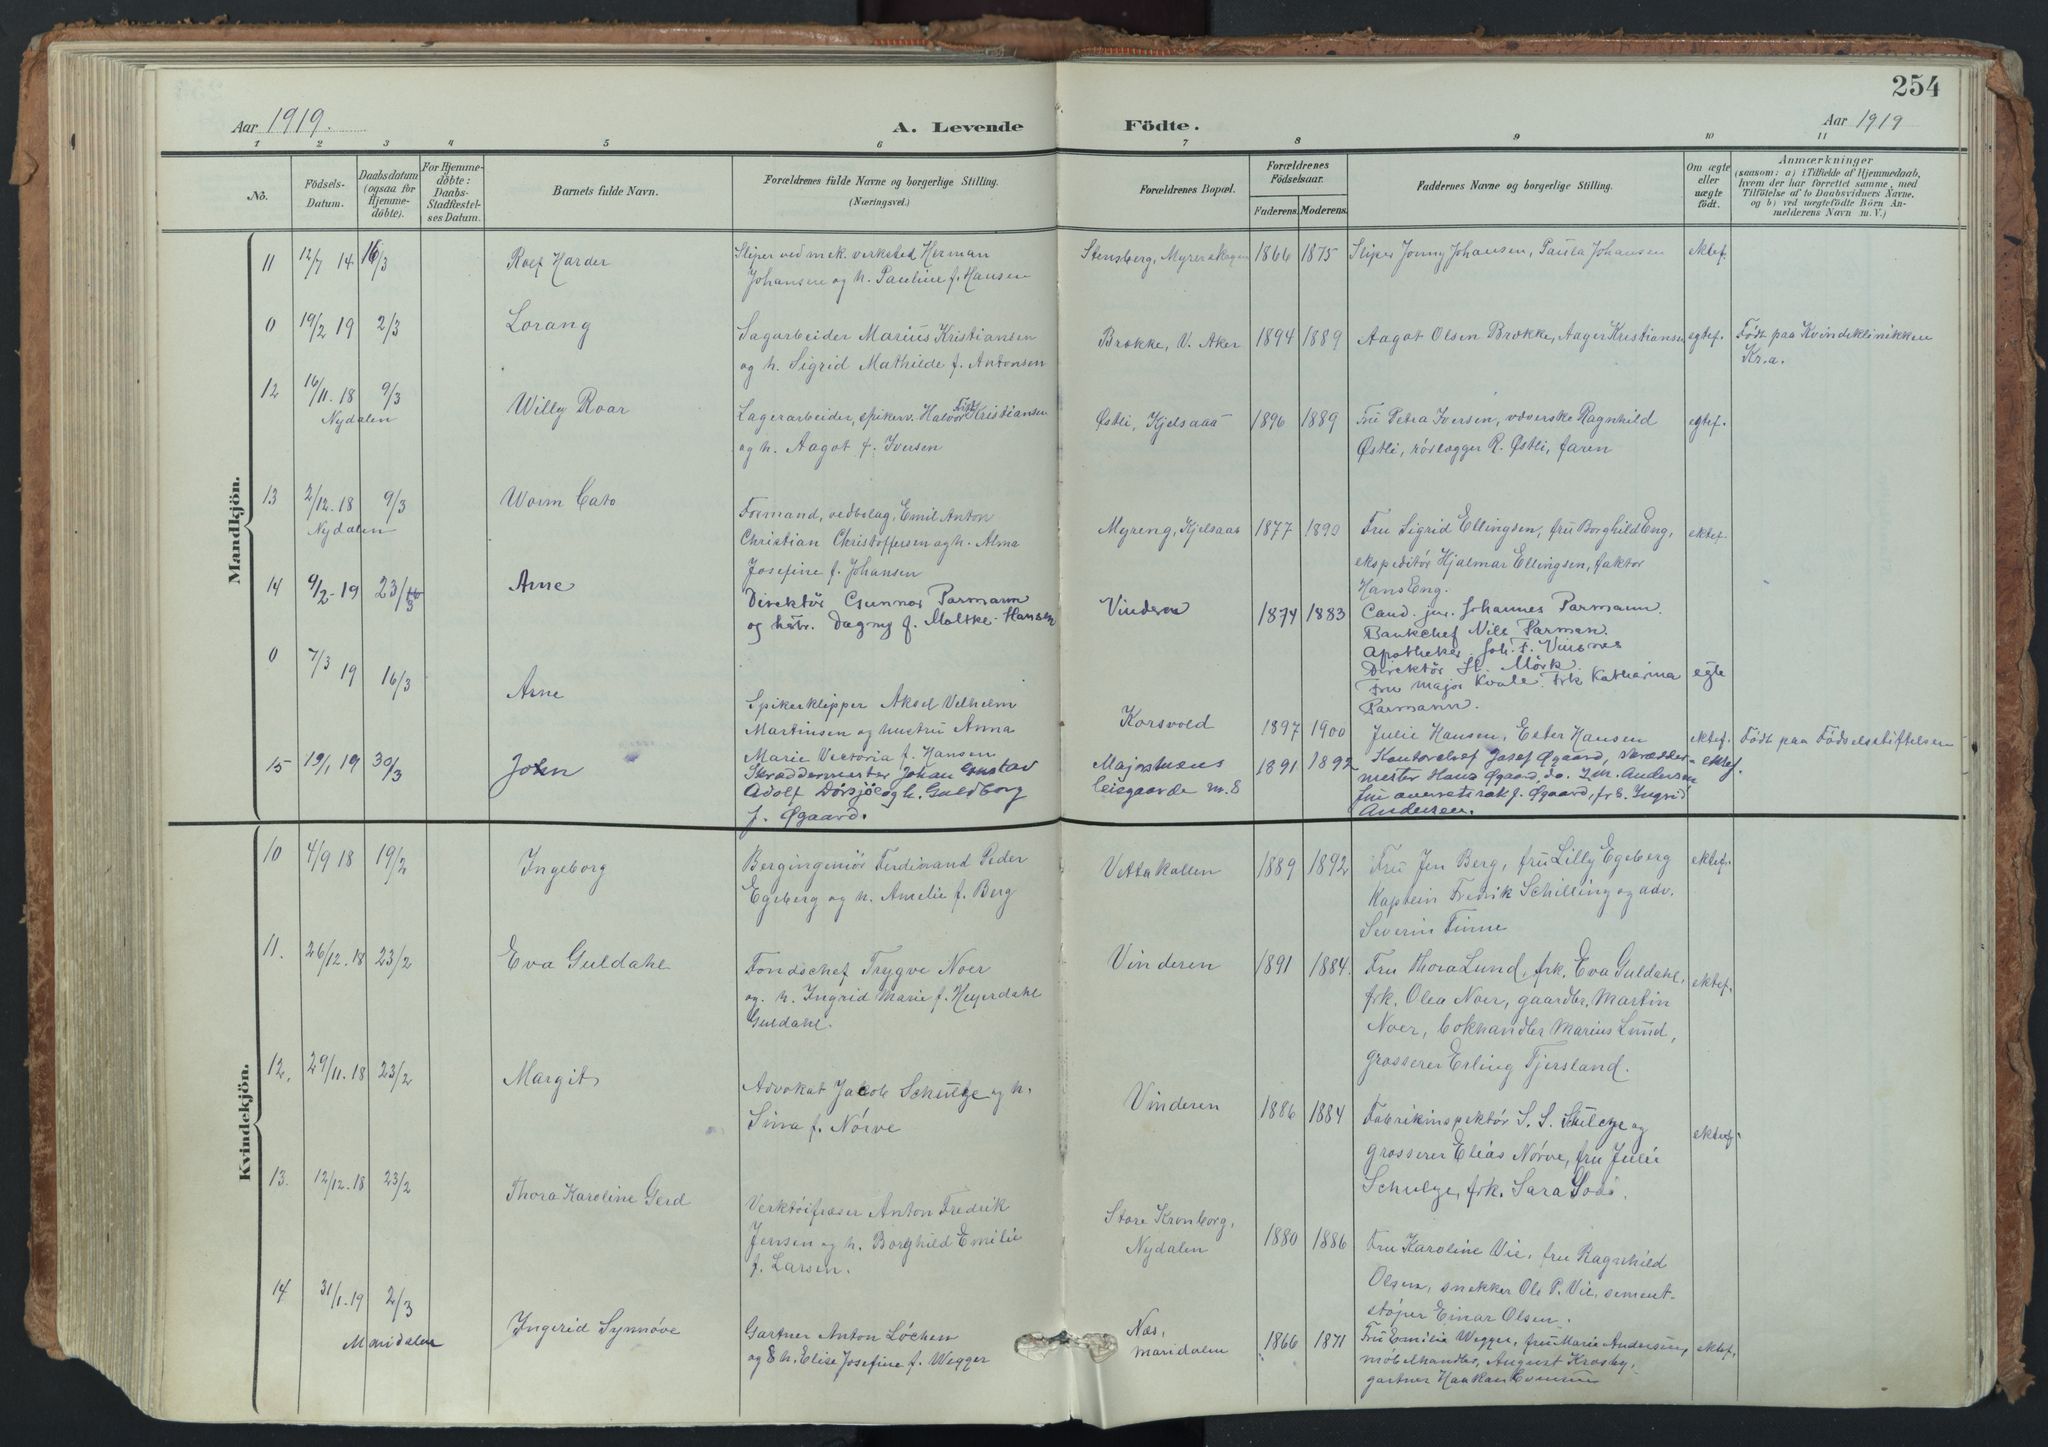 254
Aar 1919.
A. Levende Födte.
Aar 1919
1 2 3 4 5 6 7 8 9 10 11
No.
Födsels-
Datum.
Daabsdatum
(ogsaa for
Hjemme-
döbte).
For Hjemme-
döbte:
Daabs-
Stadfæstel-
ses Datum.
Barnets fulde Navn.
Forældrenes fulde Navne og borgerlige Stilling.
(Næringsvei.)
Forældrenes Bopæl.
Forældrenes
Födselsaar.
Faderens. Moderens.
Faddernes Navne og borgerlige Stilling.
Om ægte
eller
uægte
födt.
Anmærkninger
(saasom: a) i Tilfælde af Hjemmedaab,
hvem der har forrettet samme, med
Tilföielse af to Daabsvidners Navne.
og b) ved uægtefödte Börn An-
melderens Navn m. V.)
Mandkjön.
11 12/7 14 16/3 Rolf Harder
Sliper ved mek. verksted Herman
Johansen og h. Pauline f. Hansen
Stensberg, Myrerskogen 1866 1875
Sliper Jonny Johansen, Paula Johansen ektef.
0 19/2 19 2/3 Lorang
Sagarbeider Marius Kristiansen
og h. Sigrid Mathilde f. Antonsen
Brække, V. Aker 1894 1889
Aagot Olsen Brække, Aage Kristiansen egtef.
Født paa Kvindeklinikken
Kr.a.
12 16/11.18 9/3 Willy Roar
Nydalen
Lagerarbeider, spikerv. Halvor Kristiansen
og h. Aagot f. Iversen
Østli, Kjelsaas 1896 1889
Fru Petra Iversen, væverske Ragnhild
Østli, rørlægger R. Østli, faren
egtef.
13 2/12.18 9/3 Worm Cato
Nydalen
Formand, vedbolag, Emil Anton
Christian Christoffersen og h. Alma
Josefine f. Johansen
Myreng, Kjelsaas 1877 1890
Fru Sigrid Ellingsen, fru Borghild Eng,
ekspeditør Hjalmar Ellingsen, faktor
Hans Eng.
ektef.
14 9/2-19 23/3 Arne
Direktör Gunnar Parmann
og hstr. Dagny f. Moltke-Hansen
Vinderen 1874 1883
Cand. jur. Johannes Parmann.
Bankchef Nils Parmann.
Apotheker Joh. F. Vinsnes
Direktör St. Mörk.
Fru major Kvale. Frk Katharina
Parmann.
egte
0 7/3 19 16/3 Arne
Spikerklipper Aksel Vilhelm
Martinsen og hustru Anna
Marie Viktoria f. Hansen
Korsvold 1897 1900
Julie Hansen, Ester Hansen
ektef. Født paa Fødselsstiftelsen
15 19/1 19 30/3 John
Skræddermester Johan Gustav
Adolf Dörsjö og h. Guldborg
f. Øgaard.
Majorstuens
leisgaarde nr. 8 1891 1892
Kontorchef Josef Øgaard, skrædder-
mester Hans Øgaard, do. I.M. Andersen
fru f. Øgaard, frk. Ingrid
Andersen.
ektef.
Kvindekjön.
10 4/9 18 19/2 Ingeborg
Bergingeniör Ferdinand Peder
Egeberg og h. Amelie f. Berg
Vettakollen 1889 1892
Fru Jen Berg, fru Lilly Egeberg
Kaptein Fredrik Schilling og adv.
Severin Finne
ektef.
11. 26/12.18 23/2 Eva Guldahl
Fondschef Trygve Noer
og. h. Ingrid Marie f. Heyerdahl
Guldahl.
Vinderen 1891 1884.
Fru Thora Lund, frk. Eva Guldahl,
frk. Olea Noer, gaardbr. Martin
Noer, bokhandler Marius Lund,
grosserer Erling Tjersland.
ektef.
12. 29/11.18 23/2 Margit
Advokat Jacob Schultze og h.
Sina f. Nörve
Vinderen 1886 1884
Fabrikinspektør S. S. Schulze og
grosserer Elias Nörve, fru Julie
Schulze, frk. Sara
ektef.
13. 12/12.18 23/2 Thora Karoline Gerd
Verktöifræser Anton Fredrik
Jensen og h. Borghild Emilie
f. Larsen.
Store Kronborg,
Nydalen 1880 1886
Fru Karoline Vie, fru Ragnhild
Olsen, snekker Ole P. Vie, sement-
støper Einar Olsen.
14 31/1.19 2/3 Ingerid Synnøve
Maridalen
Gartner Anton Løchen
og h. Elise Josefine f. Wegger
Næs,
Maridalen 1866 1871
Fru Emilie Wegger, fru Marie Andersen,
møbelhandler, August Krosby,
gartner Haakon
ektef.